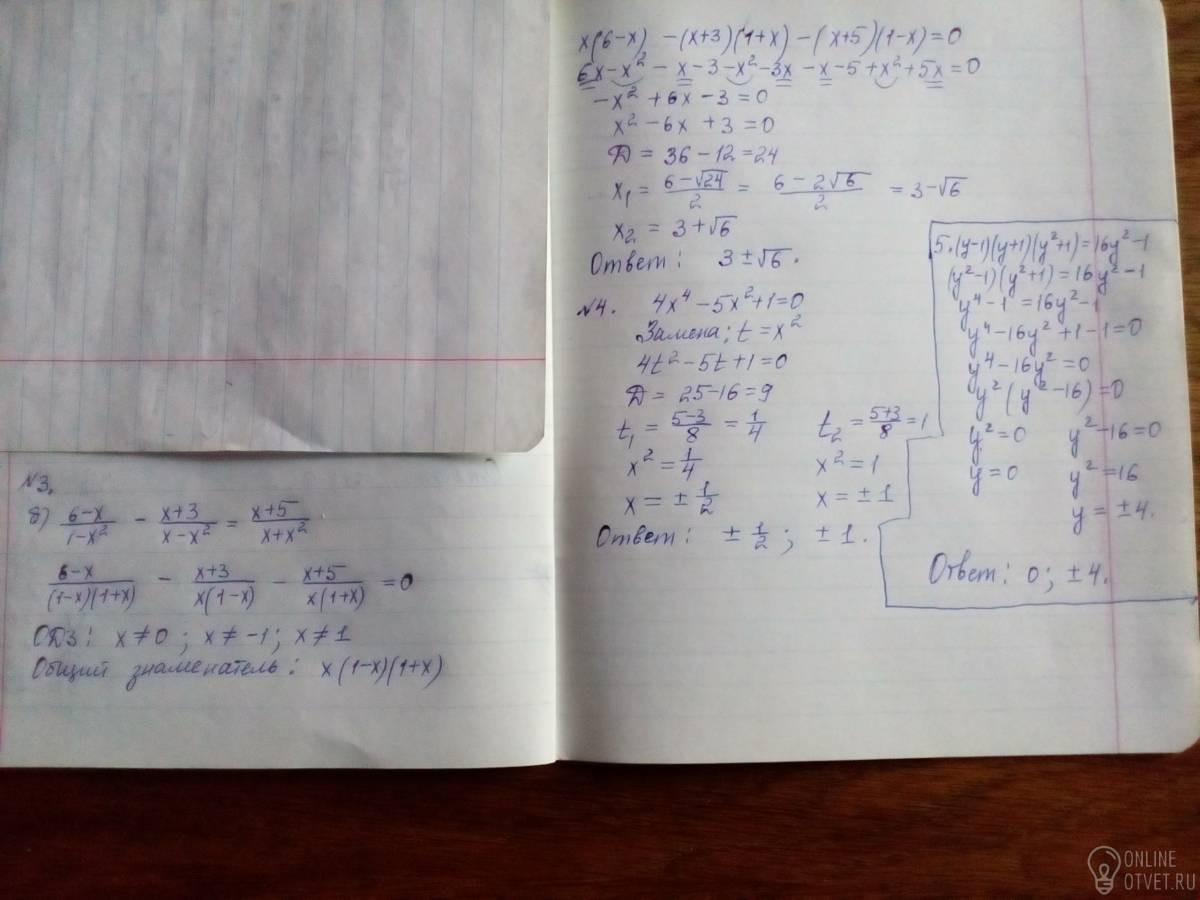 №3.
б) (6-x)/(1-x²) - (x+3)/(x-x²) = (x+5)/(x+x²)
(6-x)/((1-x)(1+x)) - (x+3)/(x(1-x)) - (x+5)/(x(1+x)) = 0
ОДЗ: x≠0; x≠-1; x≠1
Общий знаменатель: x(1-x)(1+x)
x(6-x) -(x+3)(1+x)-(x+5)(1-x)=0
6x-x²-x-3-x²-3x-x-5+x²+5x=0
-x²+6x-3=0
x²-6x+3=0
Д=36-12=24
x₁ = (6-√24)/2 = (6-2√6)/2 = 3-√6
x₂ = 3+√6
Ответ: 3±√6.
№4. 4x⁴-5x²+1=0
Замена: t=x²
4t²-5t+1=0
Д=25-16=9
t₁ = (5-3)/8 = 1/4 t₂ = (5+3)/8 = 1
x² = 1/4 x²=1
x = ± 1/2 x = ±1
Ответ: ± 1/2; ±1.
5. (y-1)(y+1)(y²+1)=16y²-1
(y²-1)(y²+1)=16y²-1
y⁴-1=16y²-1
y⁴-16y²+1-1=0
y⁴-16y²=0
y²(y²-16)=0
y²=0 y²-16=0
y=0 y²=16
y=±4.
Ответ: 0; ±4.
ONLINE
OTVET.RU